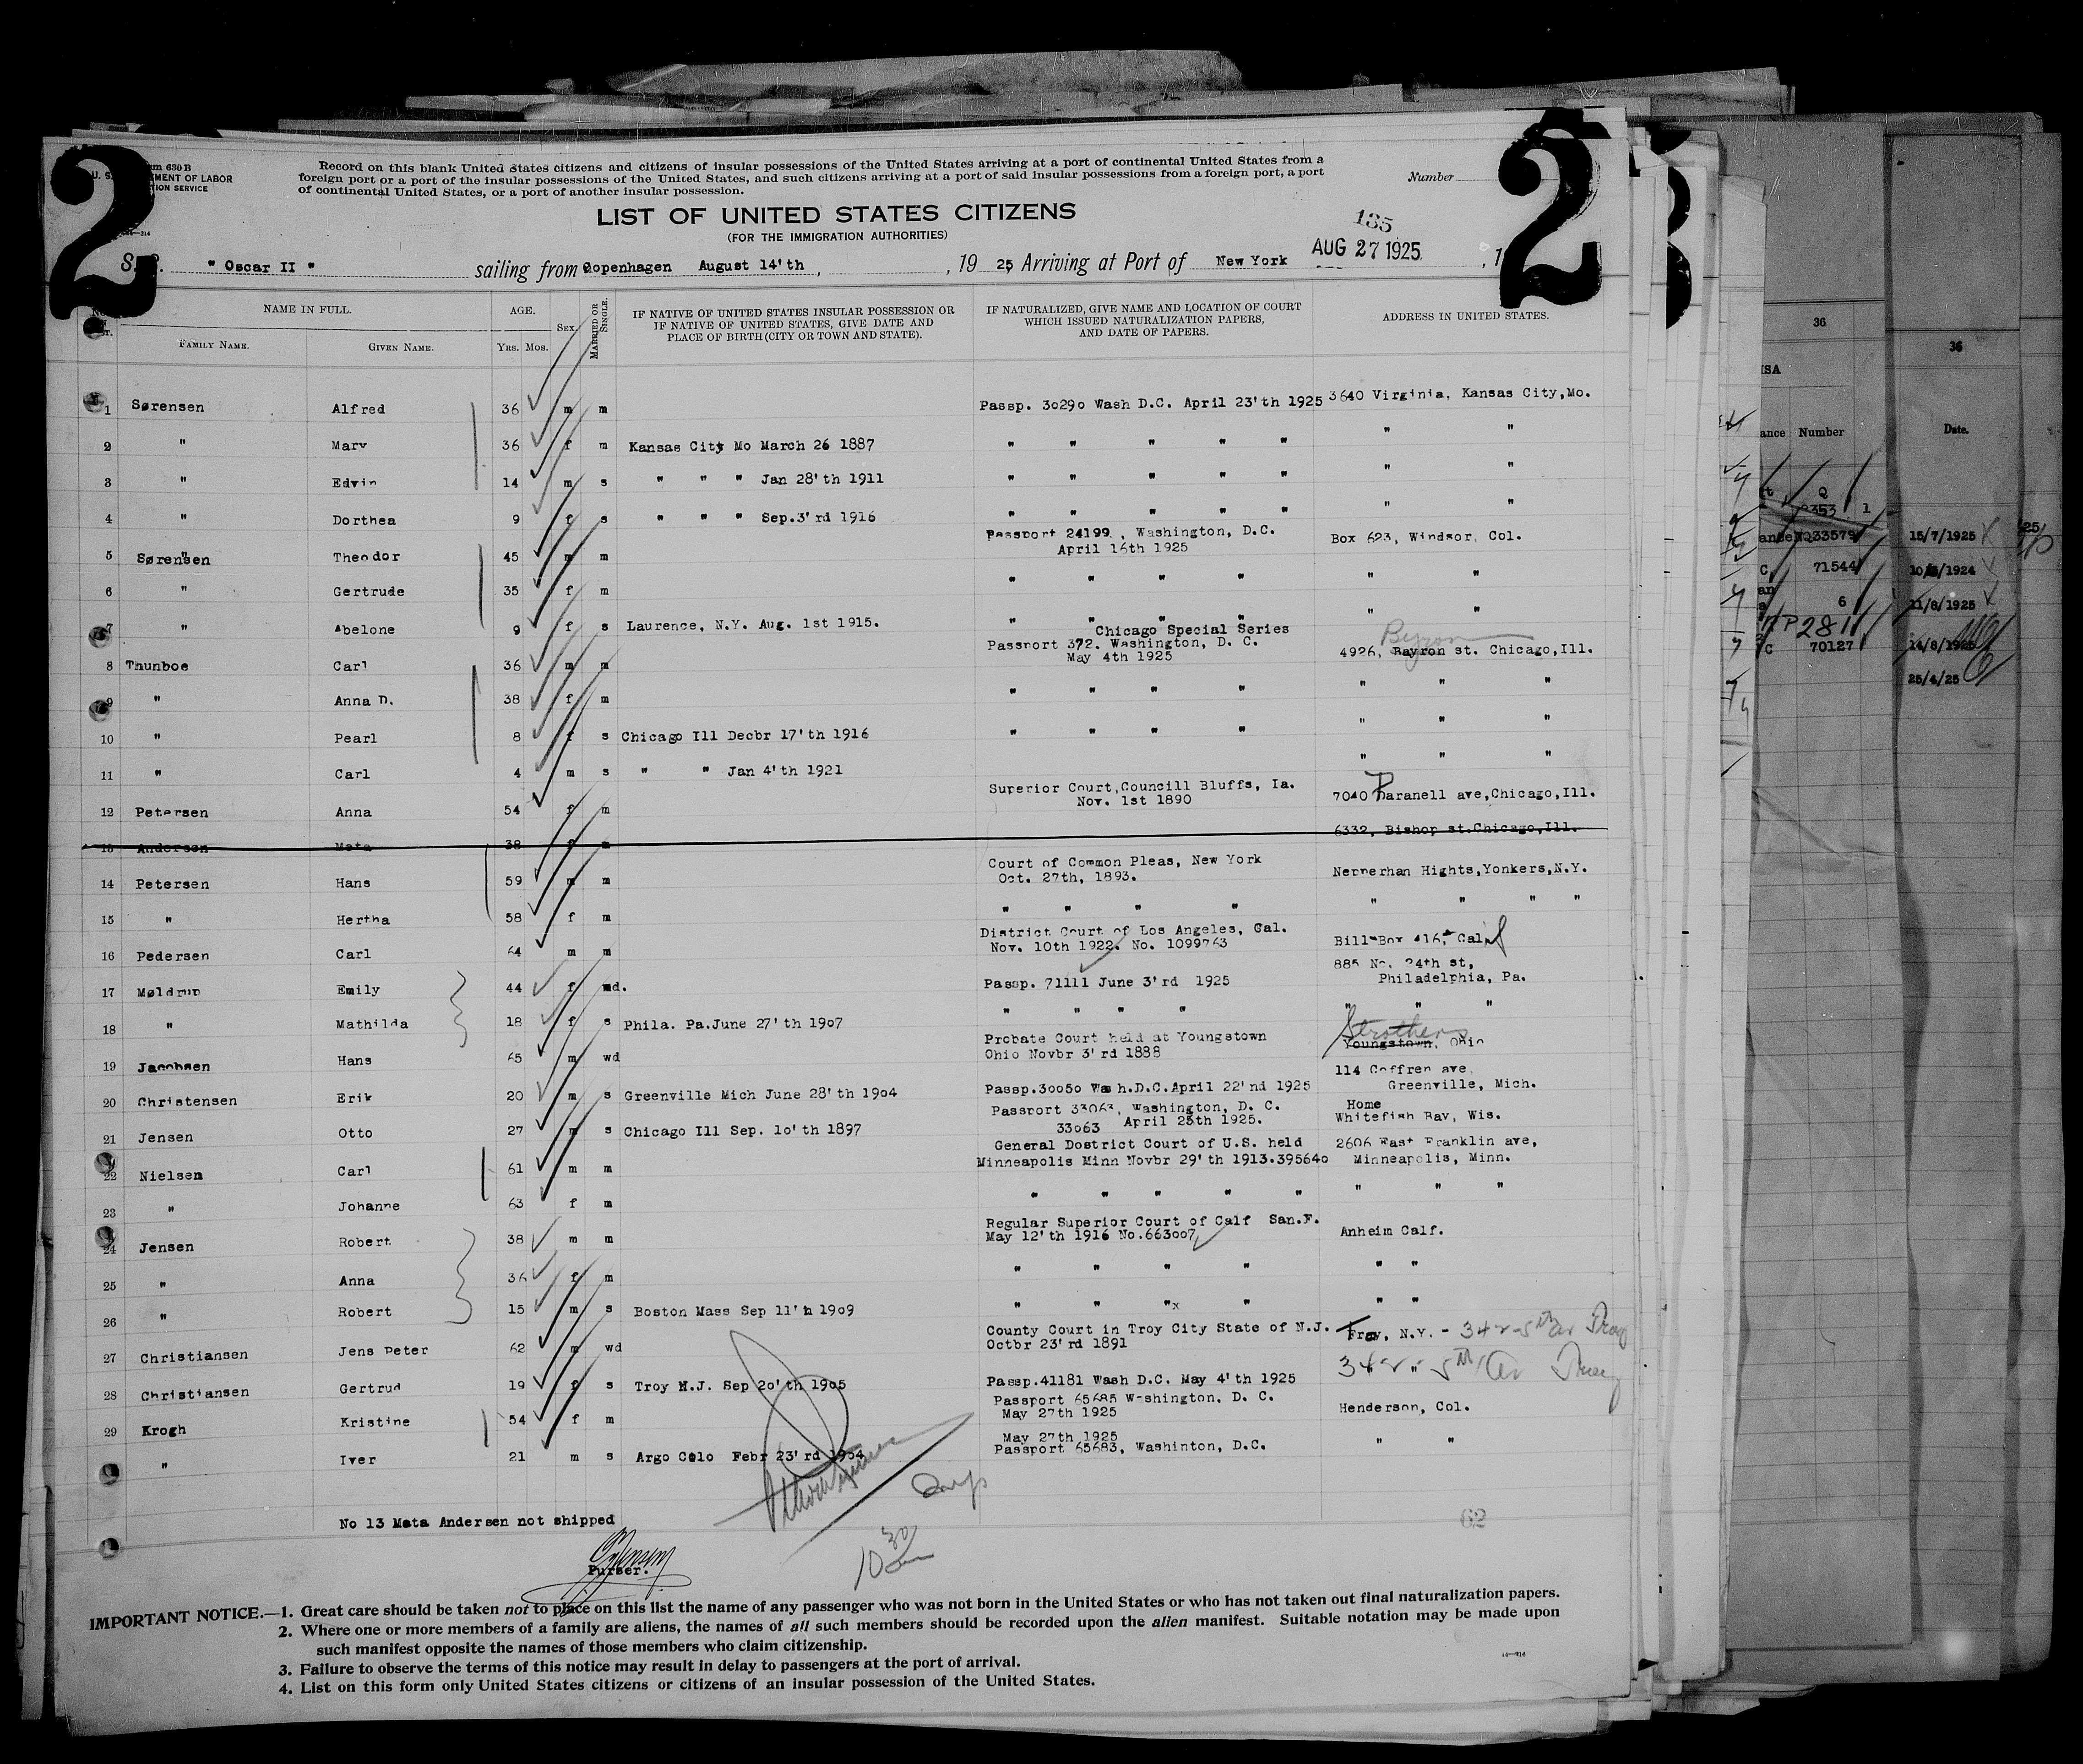 2 2
Form 630 B
U. S. DEPARTMENT OF LABOR
IMMIGRATION SERVICE
Record on this blank United States citizens and citizens of insular possessions of the United States arriving at a port of continental United States from a
foreign port or a port of the insular possessions of the United States, and such citizens arriving at a port of said insular possessions from a foreign port, a port
of continental United States, or a port of another insular possession.
Number
LIST OF UNITED STATES CITIZENS
(FOR THE IMMIGRATION AUTHORITIES)
135
S.S. " Oscar II " sailing from Copenhagen August 14'th, , 19 25 Arriving at Port of New York AUG 27 1925, 1
NAME IN FULL. AGE. SEX. MARRIED OR SINGLE. IF NATIVE OF UNITED STATES INSULAR POSSESSION OR IF NATIVE OF UNITED STATES, GIVE DATE AND PLACE OF BIRTH (CITY OR TOWN AND STATE). IF NATURALIZED, GIVE NAME AND LOCATION OF COURT WHICH ISSUED NATURALIZATION PAPERS, AND DATE OF PAPERS. ADDRESS IN UNITED STATES.
FAMILY NAME. GIVEN NAME. YRS. MOS.
1 Sørensen Alfred 36 m m Passp. 30290 Wash D.C. April 23'th 1925 3640 Virginia, Kansas City, Mo.
2 " Mary 36 f m Kansas City Mo March 26 1887 " " " " " " "
3 " Edvin 14 m s " " " Jan 28'th 1911 " " " " " " "
4 " Dorthea 9 f s " " " Sep.3'rd 1916 " " " " " " "
5 Sørensen Theodor 45 m m Passport 24199, Washington, D.C. April 16th 1925 Box 623, Windsor, Col.
6 " Gertrude 35 f m " " " " " "
7 " Abelone 9 f s Laurence, N.Y. Aug. 1st 1915. " " " " " "
8 Thunboe Carl 36 m m Chicago Special Series Passport 372. Washington, D. C. May 4th 1925 Byron 4926, Bayron st. Chicago, Ill.
9 " Anna D. 38 f m " " " " " " "
10 " Pearl 8 f s Chicago Ill Decbr 17'th 1916 " " " " " " "
11 " Carl 4 m s " " Jan 4'th 1921 " " "
12 Petersen Anna 54 f m Superior Court, Councill Bluffs, Ia. Nov. 1st 1890 7040 Paranell ave, Chicago, Ill.
13 Andersen Meta 38 f m 6332, Bishop st. Chicago, Ill.
14 Petersen Hans 59 m m Court of Common Pleas, New York Oct. 27th, 1893. Nepperhan Hights, Yonkers, N.Y.
15 " Hertha 58 f m " " " " " " " "
16 Pedersen Carl 64 m m District Court of Los Angeles, Cal. Nov. 10th 1922. No. 1099763 Bill Box 416, Cal
17 Møldrup Emily 44 f wd. Passp. 71111 June 3'rd 1925 885 No. 24th st, Philadelphia, Pa.
18 " Mathilda 18 f s Phila. Pa. June 27'th 1907 " " " " " " "
19 Jacobsen Hans 65 m wd Probate Court held at Youngstown Ohio Novbr 3'rd 1888 Struthers Youngstown, Ohio
20 Christensen Erik 20 m s Greenville Mich June 28'th 1904 Passp.30050 Wash.D.C. April 22'nd 1925 114 Coffren ave, Greenville, Mich.
21 Jensen Otto 27 m s Chicago Ill Sep. 10'th 1897 Passport 33063, Washington, D. C. 33063 April 25th 1925. Home Whitefish Bay, Wis.
22 Nielsen Carl 61 m m General Dostrict Court of U.S. held Minneapolis Minn Novbr 29'th 1913.395640 2606 East Franklin ave, Minneapolis, Minn.
23 " Johanne 63 f m " " " " " " " "
24 Jensen Robert 38 m m Regular Superior Court of Calf San.F. May 12'th 1916 No.663007 Anheim Calf.
25 " Anna 36 f m " " " " " "
26 " Robert 15 m s Boston Mass Sep 11'h 1909 " " "x " " "
27 Christiansen Jens Peter 62 m wd County Court in Troy City State of N.J. Octbr 23'rd 1891 Troy, N.Y. - 342-5th av Troy
28 Christiansen Gertrud 19 f s Troy N.J. Sep 20'th 1905 Passp.41181 Wash D.C. May 4'th 1925 342 " 5th Av Troy
29 Krogh Kristine 54 f m Passport 65685 Washington, D. C. May 27th 1925 Henderson, Col.
" Iver 21 m s Argo Colo Febr 23'rd 1904 May 27th 1925 Passport 65683, Washinton, D.C. " "
No 13 Meta Andersen not shipped
62
Purser.
10 30
IMPORTANT NOTICE.—1. Great care should be taken not to place on this list the name of any passenger who was not born in the United States or who has not taken out final naturalization papers.
2. Where one or more members of a family are aliens, the names of all such members should be recorded upon the alien manifest. Suitable notation may be made upon
such manifest opposite the names of those members who claim citizenship.
3. Failure to observe the terms of this notice may result in delay to passengers at the port of arrival.
4. List on this form only United States citizens or citizens of an insular possession of the United States.
36
36
Number
Date.
33579 15/7/1925
71544
6 11/8/1925
2811
70127 14/8/1925
25/4/25